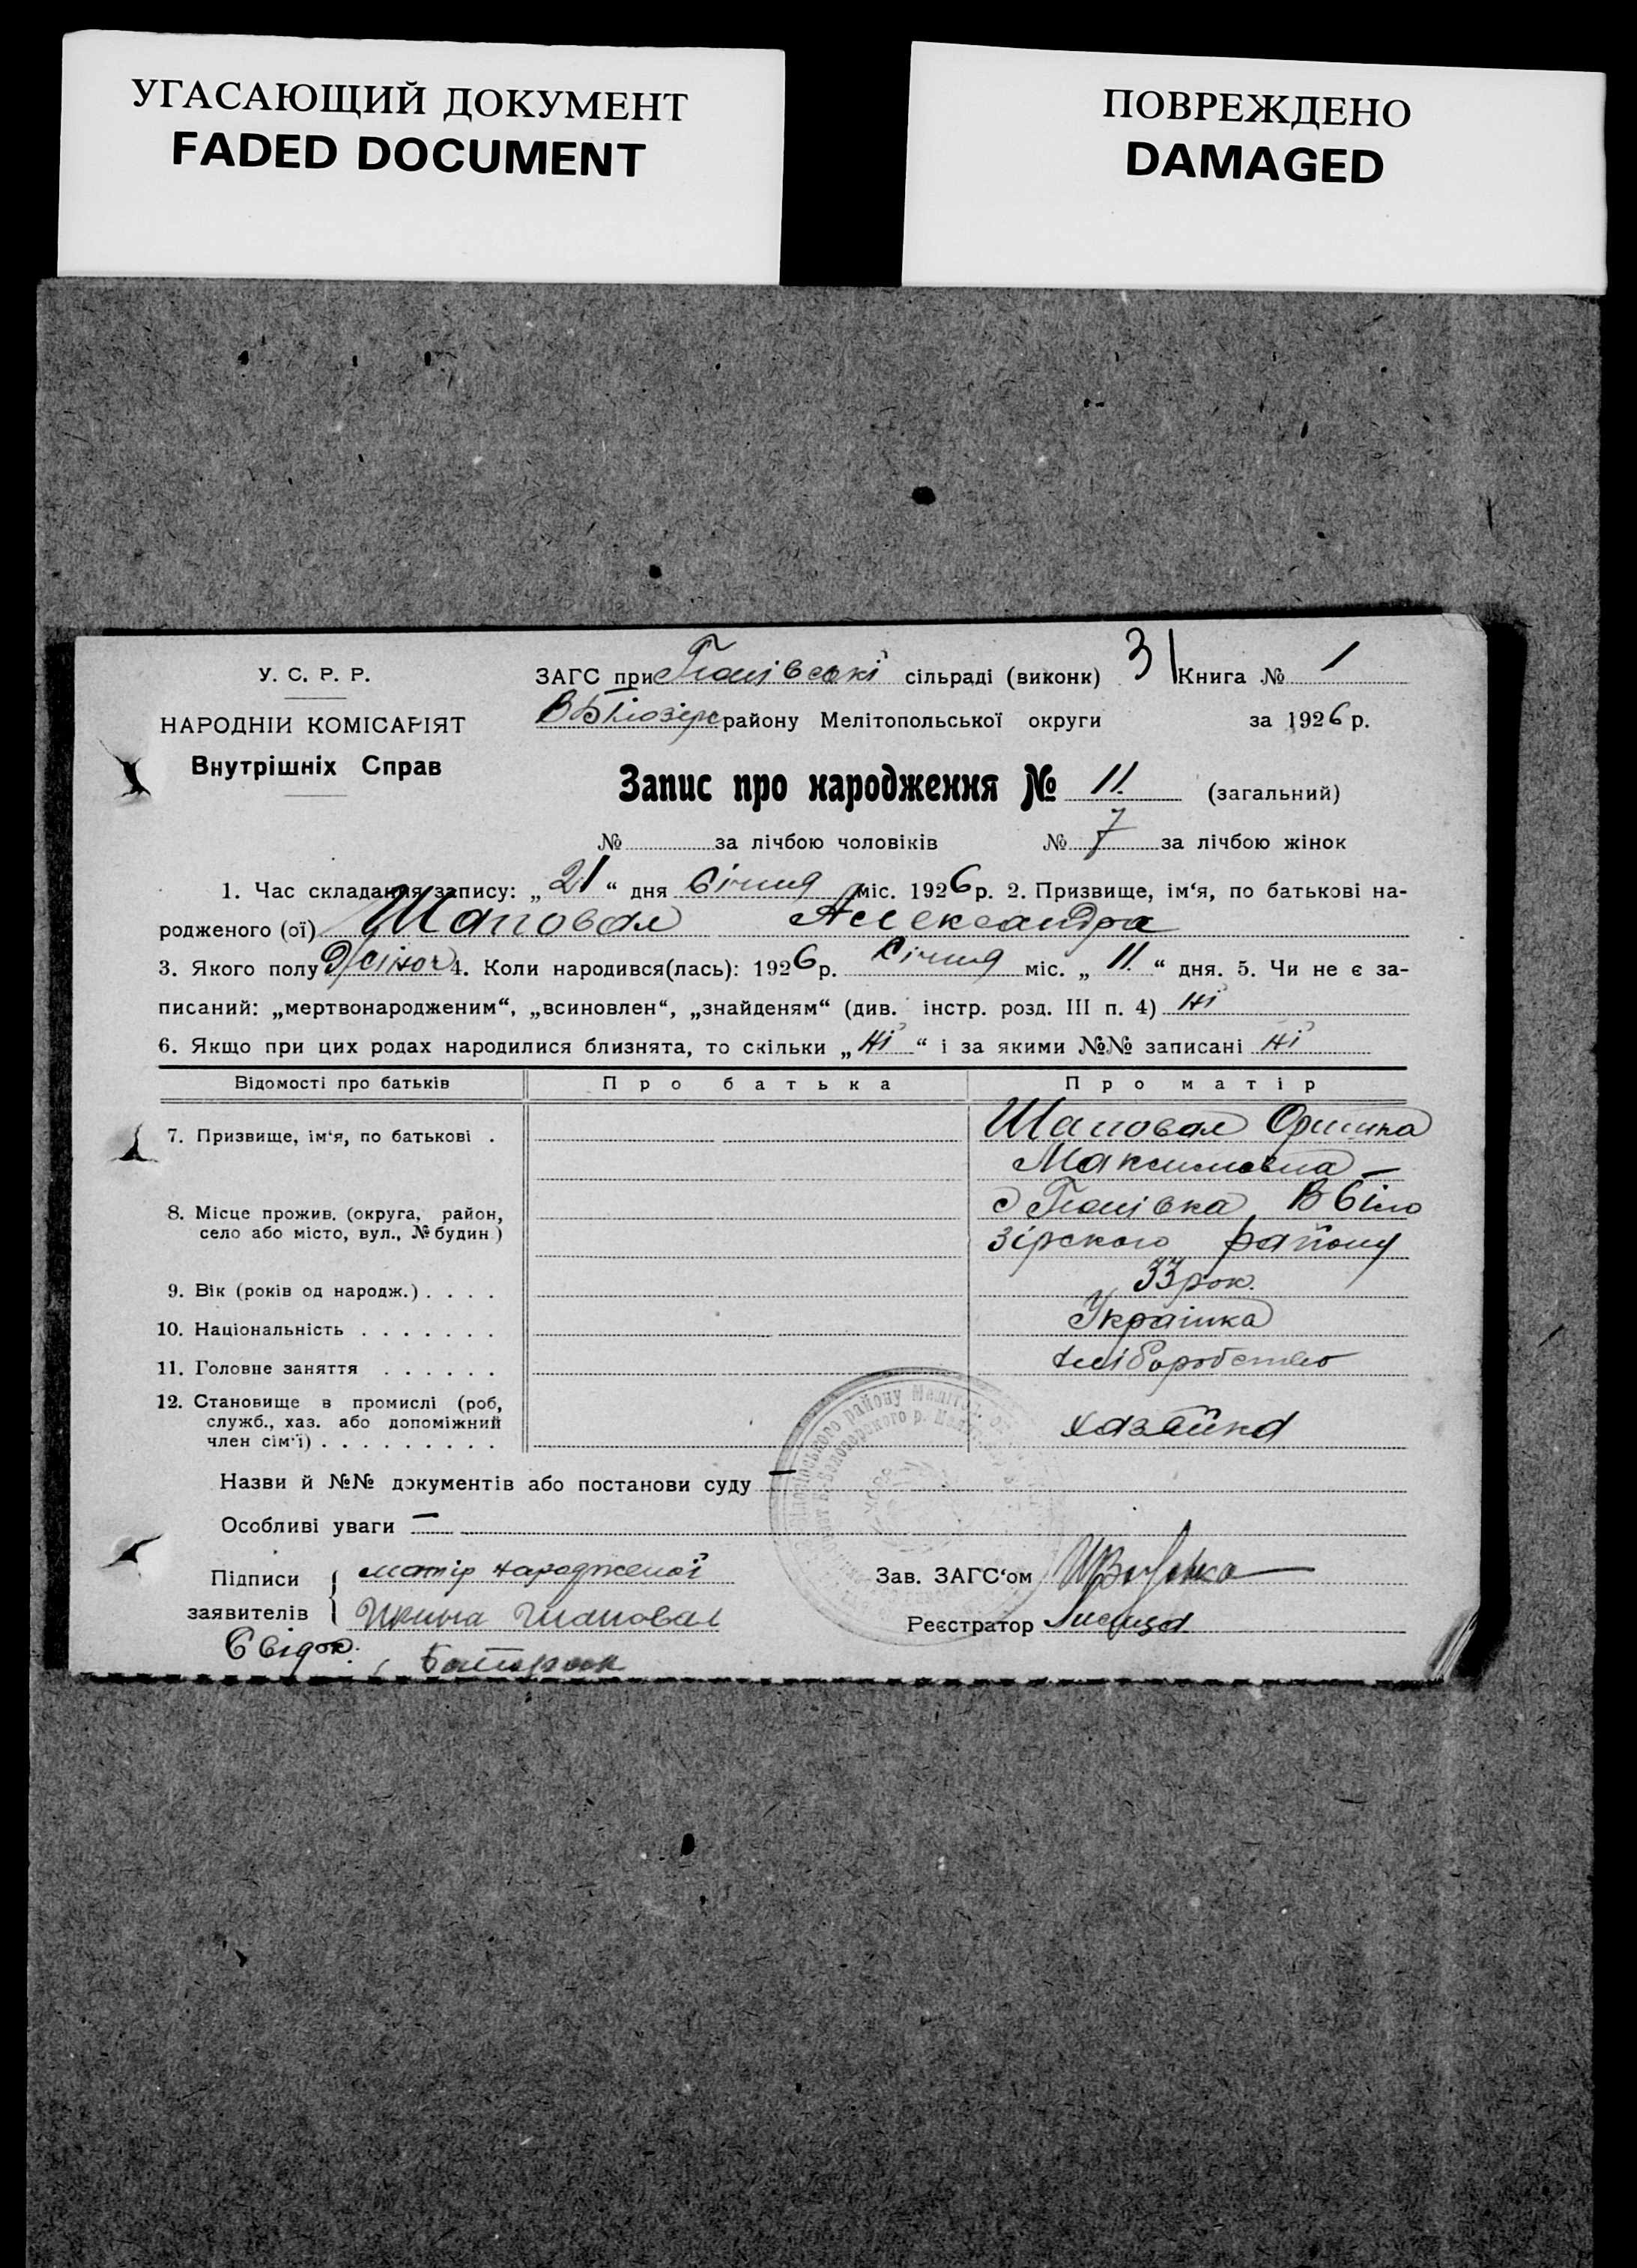 УГАСАЮЩИЙ ДОКУМЕНТ
FADED DOCUMENT
ПОВРЕЖДЕНО
DAMAGED
У. С. Р. Р.
НАРОДНІЙ КОМІСАРІЯТ
Внутрішніх Справ
ЗАГС при сільраді (виконк) 31 Книга № 1
В Білозірс району Мелітопольської округи за 1926 р.
Запис про народження № 11. (загальний)
№ за лічбою чоловіків № 7 за лічбою жінок
1. Час складання запису: „21“ дня Січня міс. 1926 р. 2. Призвище, ім‘я, по батькові на-
родженого (ої) Шаповал Александра
3. Якого полу Жіноч 4. Коли народився(лась): 1926 р. Січня міс. „11.“ дня. 5. Чи не є за-
писаний: „мертвонародженим“, „всиновлен“, „знайденям“ (див. інстр. розд. III п. 4) Ні
6. Якщо при цих родах народилися близнята, то скільки „Ні“ і за якими №№ записані Ні
Відомості про батьків Про батька Про матір
7. Призвище, ім‘я, по батькові . Шаповал Оришка
Максимовна
8. Місце прожив. (округа, район,
село або місто, вул., № будин.) В Біло
зірского району
9. Вік (років од народж.) . . . . 33 рок.
10. Національність . . . . . . . Українка
11. Головне заняття . . . . . . хліборобство
12. Становище в промислі (роб,
служб., хаз. або допоміжний
член сім‘ї) . . . . . . . . . хазяйка
Назви й №№ документів або постанови суду —
Особливі уваги —
Підписи матір народженої
заявителів Ирина Шаповал
Свідок:
Зав. ЗАГС‘ом
Реєстратор